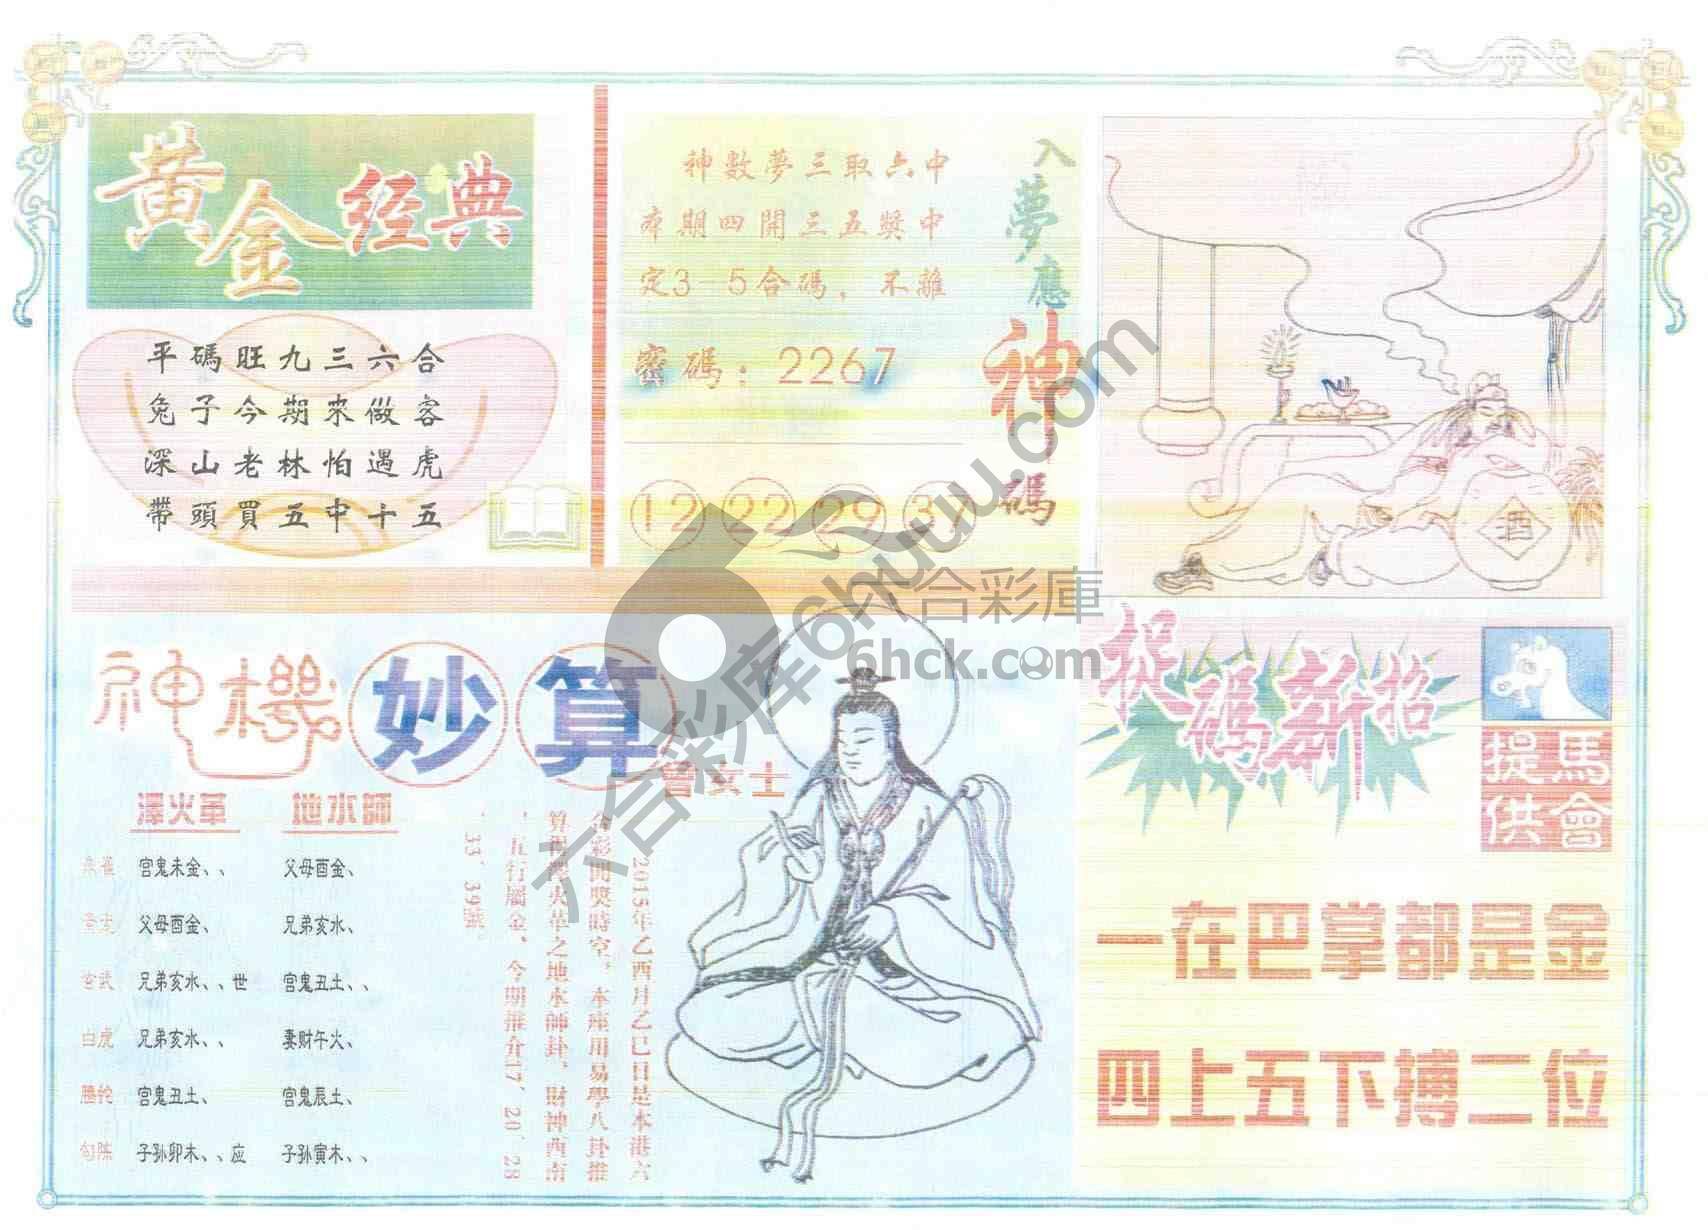 黄金经典
平碼旺九三六合
兔子今期來做客
深山老林怕遇虎
帶頭買五中十五
入夢應神碼
神數夢三取六中
本期四開三五獎中
定3-5合碼，不離
密碼：2267
12 22 29 37
酒
神機妙算
曾女士
澤火革 地水師
朱雀 宫鬼未金、、 父母酉金、
青龙 父母酉金、 兄弟亥水、
玄武 兄弟亥水、、世 宫鬼丑土、、
白虎 兄弟亥水、、 妻财午火、
螣蛇 宫鬼丑土、 宫鬼辰土、
勾陈 子孙卯木、、应 子孙寅木、、
2015年乙酉月乙巳日是本港六
合彩開獎時空，本座用易學八卦推
算得澤火革之地水師卦，財神西南
，五行屬金、今期推介17、20、28
、33、39號。
捉碼新招
馬會提供
一在巴掌都是金
四上五下搏二位
六合彩库6huuu.com
六合彩庫
6hck.com